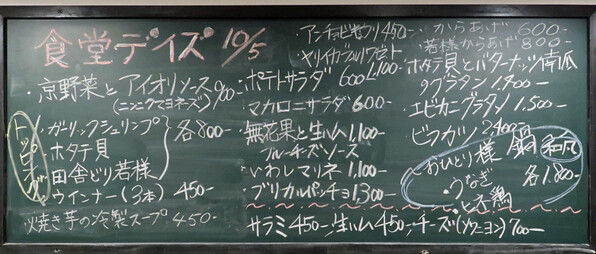 食堂デイズ 10/5
・京野菜とアイオリソース 900-
(ニンニクマヨネーズ)
トッピング
・ガーリックシュリンプ
・ホタテ貝
・田舎どり若様
各800-
・ウインナー(3本) 450-
・焼き芋の冷製スープ 450-
・アンチョビ 450-
1,100-
・ポテトサラダ 600-
・マカロニサラダ 600-
・無花果と生ハム 1,100-
ブルーチーズソース
・いわしマリネ 1,100-
・ブリカルパッチョ 1,300-
・からあげ 600-
・若様からあげ 800-
・ホタテ貝とバターナッツ南瓜
のグラタン 1,700-
・エビカニグラタン 1,500-
・ビフカツ 2,400-
おひとり様 鍋 和風
・うなぎ
各1,800-
サラミ 450- 生ハム 450- チーズ 700-